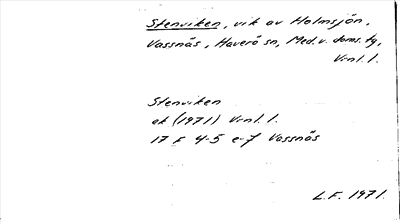 Stenviken, vik av Holmsjön,
Vassnäs, Haverö sn, Med.v. doms. tg,
Vrnl. l.
Stenviken
ek (1971) Vrnl. l.
17 F 4-5 e-f Vassnäs
L.F. 1971.